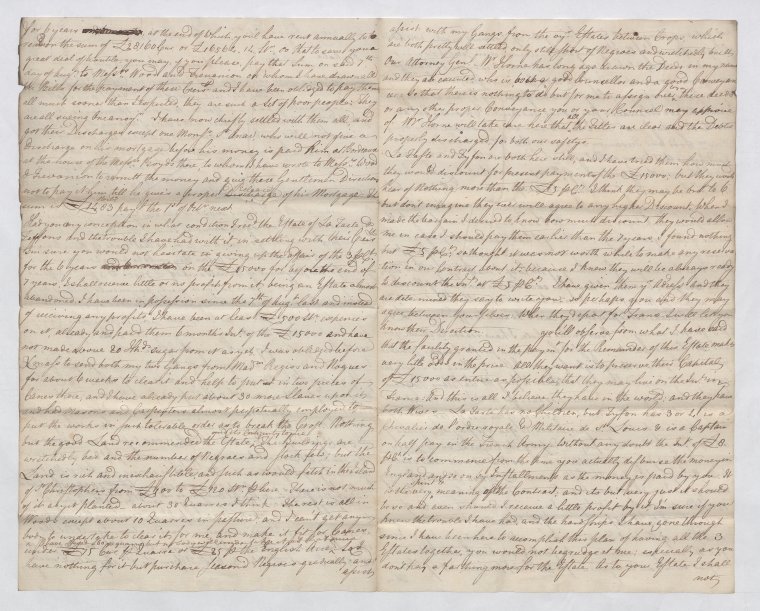 for 6 years at the end of which you'l have rent annually to
the sum of £28160 Cur or £1656.9.14 St. So that to save you a
great deal of trouble you may if you please, pay that Sum on said 7th
day of Aug. to Mess. Wood and Trevanion on whom I have drawn all
the Bills for the payment of these Cred.rs and I have been obliged to pay them
all much sooner than I expected, they are such a set of poor people. They
are all living but any. I have now chiefly settled with them all and
got their Discharges except one Mons.r St. Amas who will not give a
Discharge on his mortgage before his money is paid him at Bordeaux
at the house of the Mess.rs Boyds there, to whom I have wrote to Mess.rs Wood
& Trevanion to remitt the money and give these Gentlemen Direction
not to pay it him till he gives a proper Discharge of his Mortgage. The
sum is £1483 pay. the 1st of Oct. next
Had you any conception in what condition I rec'd the Estate of La Taste &
Tyffons and the trouble I have had with it in settling with their Cred.rs
I'm sure you would not hesitate in giving up the affair of the 3 p C.t
for the 6 years on the £15000 for before the end of
7 years, I shall receive little or no profit from it, being an Estate almost
abandoned. I have been in possession since the 7th of Aug. last and instead
of receiving any profits I have been at least £1500 St. expences
on it, already and paid them 6 months Int. of the £15000 and have
not made above 20 Hhd. Sugar from it as yet. I was obliged before
Xmass to send both my two Gangs from Mad. Regis and Roques
for about 6 weeks to clean it and help to put in two pieces of
Canes there, and I have already put about 30 more Slaves upon it
and had Masons and Carpenters almost perpetually employed to
put the works in just tolerable order as to break the Crop. Nothing
but the good Land recommends the Estate, the Buildings are
wretchedly bad and the number of Negroes and stock few; but the
Land is rich and inexhaustible, and such as would fetch in the island
of St Christophers from £100 to £120 St. p Acre. There is not much
of it as yet planted, about 30 Quarres I think. The rest is all in
Wood except about 10 Quarres in pasture, and I can't get any
body to undertake to clear it for me, and make it fit for Canes,
under £75 Cur p Quarre at £25 p the English Acre. So I
have nothing for it but purchase season'd Negroes gradually and
assist
assist with my Gangs from the other Estates between Crops which
are both pretty well settled only still short of Negroes and wretchedly built.
Our Attorney Gen.l W. Tyrone has long ago drawn the Deeds in my name
and they are executed who is both a good Counsellor and a good Conveyan-
cer. So that here is nothing to do but for me to assign over these deeds
or any other proper Conveyance you or your Counsel may approve
of. Mr Tyrone will take care here that all the Titles are clear and the Deeds
properly discharged for both our safetys
La Taste and Tyfon are both here still, and I have tried them hard to night
they would discount for present payment of the £15000; but they wont
hear of nothing more than the £5 p C.t. I think they may be brot to 6
but dont imagine they ever will agree to any higher Discount. When I
made the bargain I desired to know how much discount they would allow
me in case I should pay them earlier than the 7 years. I found nothing
but £5 p C.t so thought it was not worth while to make any reserva-
tion in our Contract about it, because I knew they will be always ready
to discount the Int. at £5 p C.t. I have given them yr. Adress and they
are determined they say to write you; so perhaps you and they may
agree between yourselves. When they depart for France I will let you
know their Direction. you'll observe from what I have said
that the facility granted in the payments for the Remainder of this Estate makes
very little odds in the price. All they want is to preserve their Capitals
of £15000 as entire as possible, that they may live on the Int. in
France. And this is all I believe they have in the world; and they have
both Wives. La Taste has no Children, but Tyfon has 3 or 4. is a
chevalier de l'ordre royal & Militaire de St. Louis & is a Captain
on half pay in the French Army. Without any doubt the Int. of £8
p C.t is to commence from the time you actually disburse the money in
England, and so on by Installments as the money is paid by you. It
is the very meaning and spirit of the Contract, and its but very just it should
be so and even should I receive a little profit by it I'm sure if you
knew the trouble I have had, and the hardships I have gone through
since I have been here to accomplish this plan of having all the 3
Estates together, you would not begrudge it me; especially as you
dont pay a farthing more for the Estate. As to your Estate I shall
not